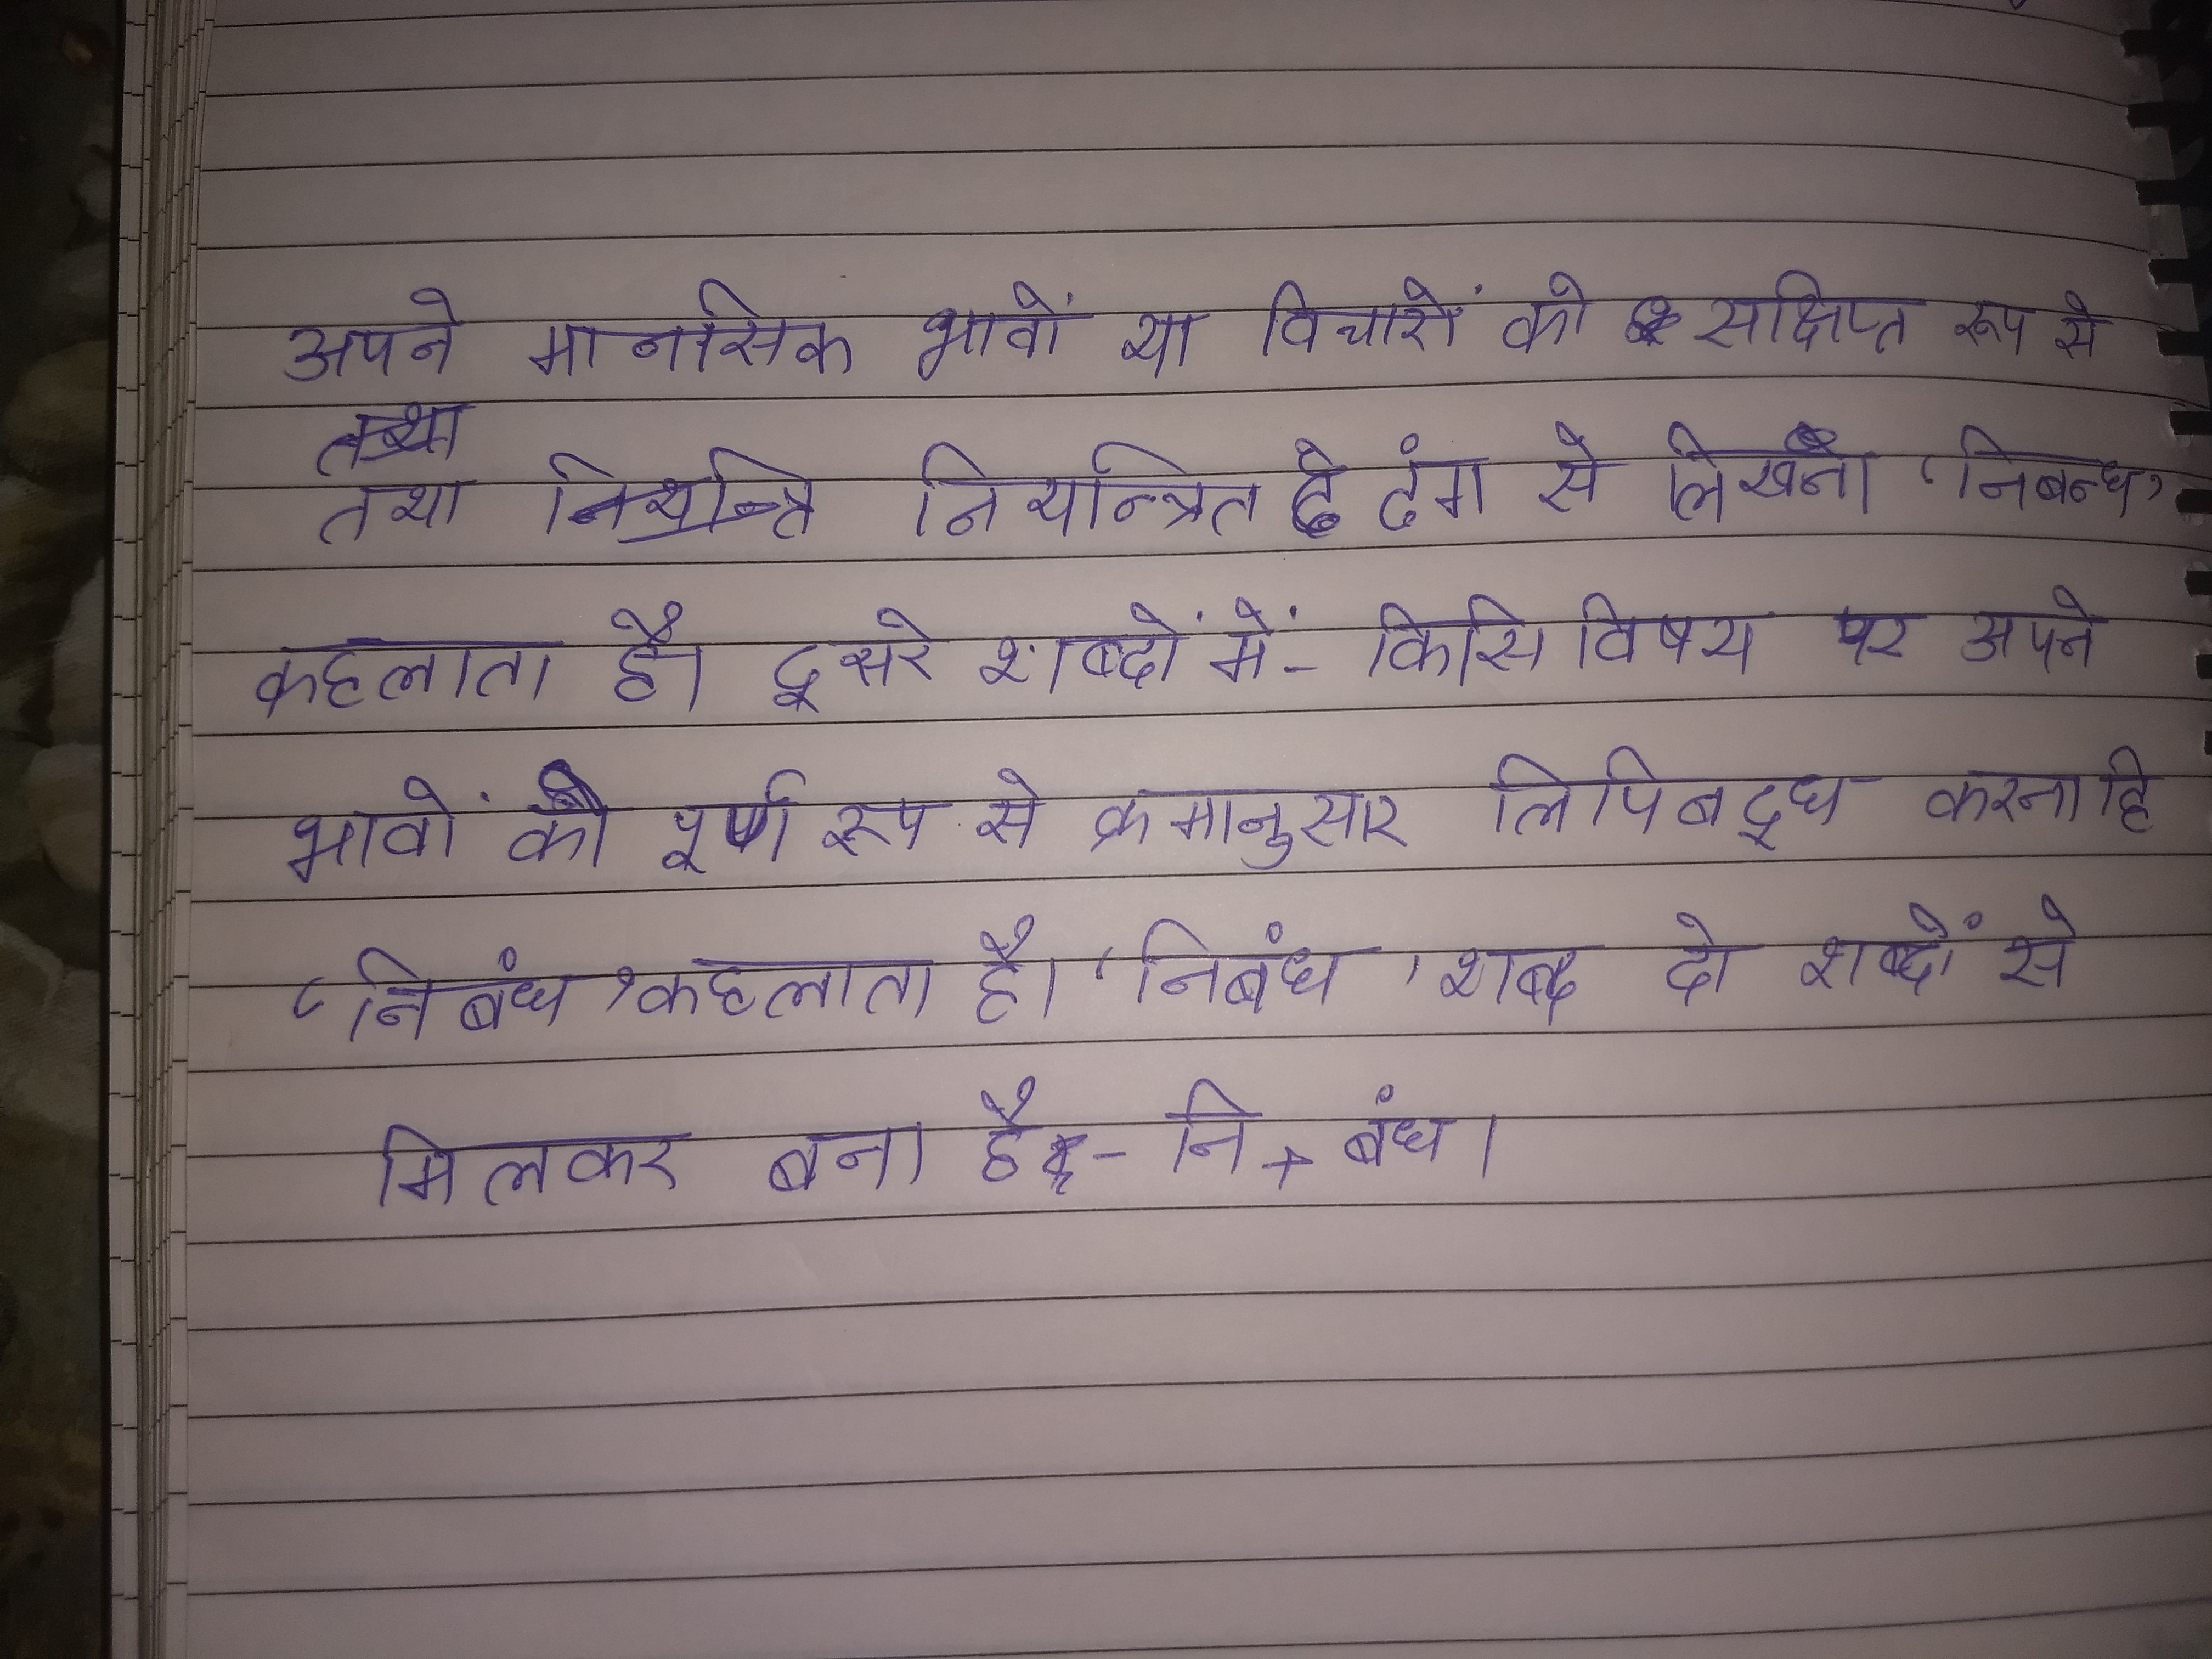 अपने मानसिक भावों या विचारों को सक्षिप्त रूप से
तथा
तथा नियन्त्रित ढंग से लिखना 'निबन्ध'
कहलाता है। दूसरे शब्दों में- किसि विषय पर अपने
भावों को पूर्ण रूप से क्रमानुसार लिपिबद्ध करना हि
'निबंध' कहलाता है। 'निबंध' शब्द दो शब्दों से
मिलकर बना है- नि + बंध।